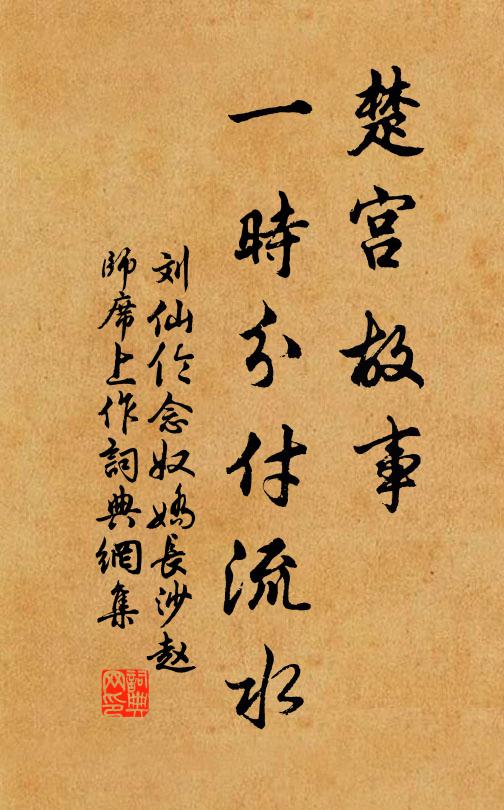 楚宫故事
一時分付流水
刘仙伦念奴嬌長沙赵
師席上作詞典網集
詞典
网印